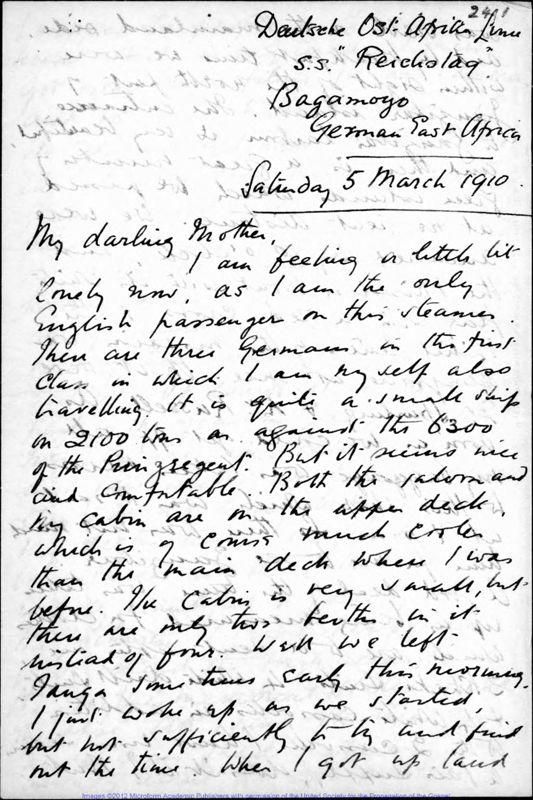 241
Deutsche Ost-Afrika Linie
S.S. "Reichstag"
Bagamoyo
German East Africa
Saturday 5 March 1910.
My darling Mother,
I am feeling a little bit
lonely now, as I am the only
English passenger on this steamer.
There are three Germans in the first
class in which I am myself also
travelling. It is quite a small ship
on 2100 tons as against the 6300
of the Prinzregent. But it seems nice
and comfortable. Both the saloon and
my cabin are on the upper deck,
which is of course much cooler
than the main deck where I was
before. The cabin is very small, but
there are only two berths in it
instead of four. Well we left
Tanga some time early this morning.
I just woke up as we started,
but not sufficiently to try and find
out the time. When I got up land
Images ©2012 Microform Academic Publishers with permission of the United Society for the Propagation of the Gospel